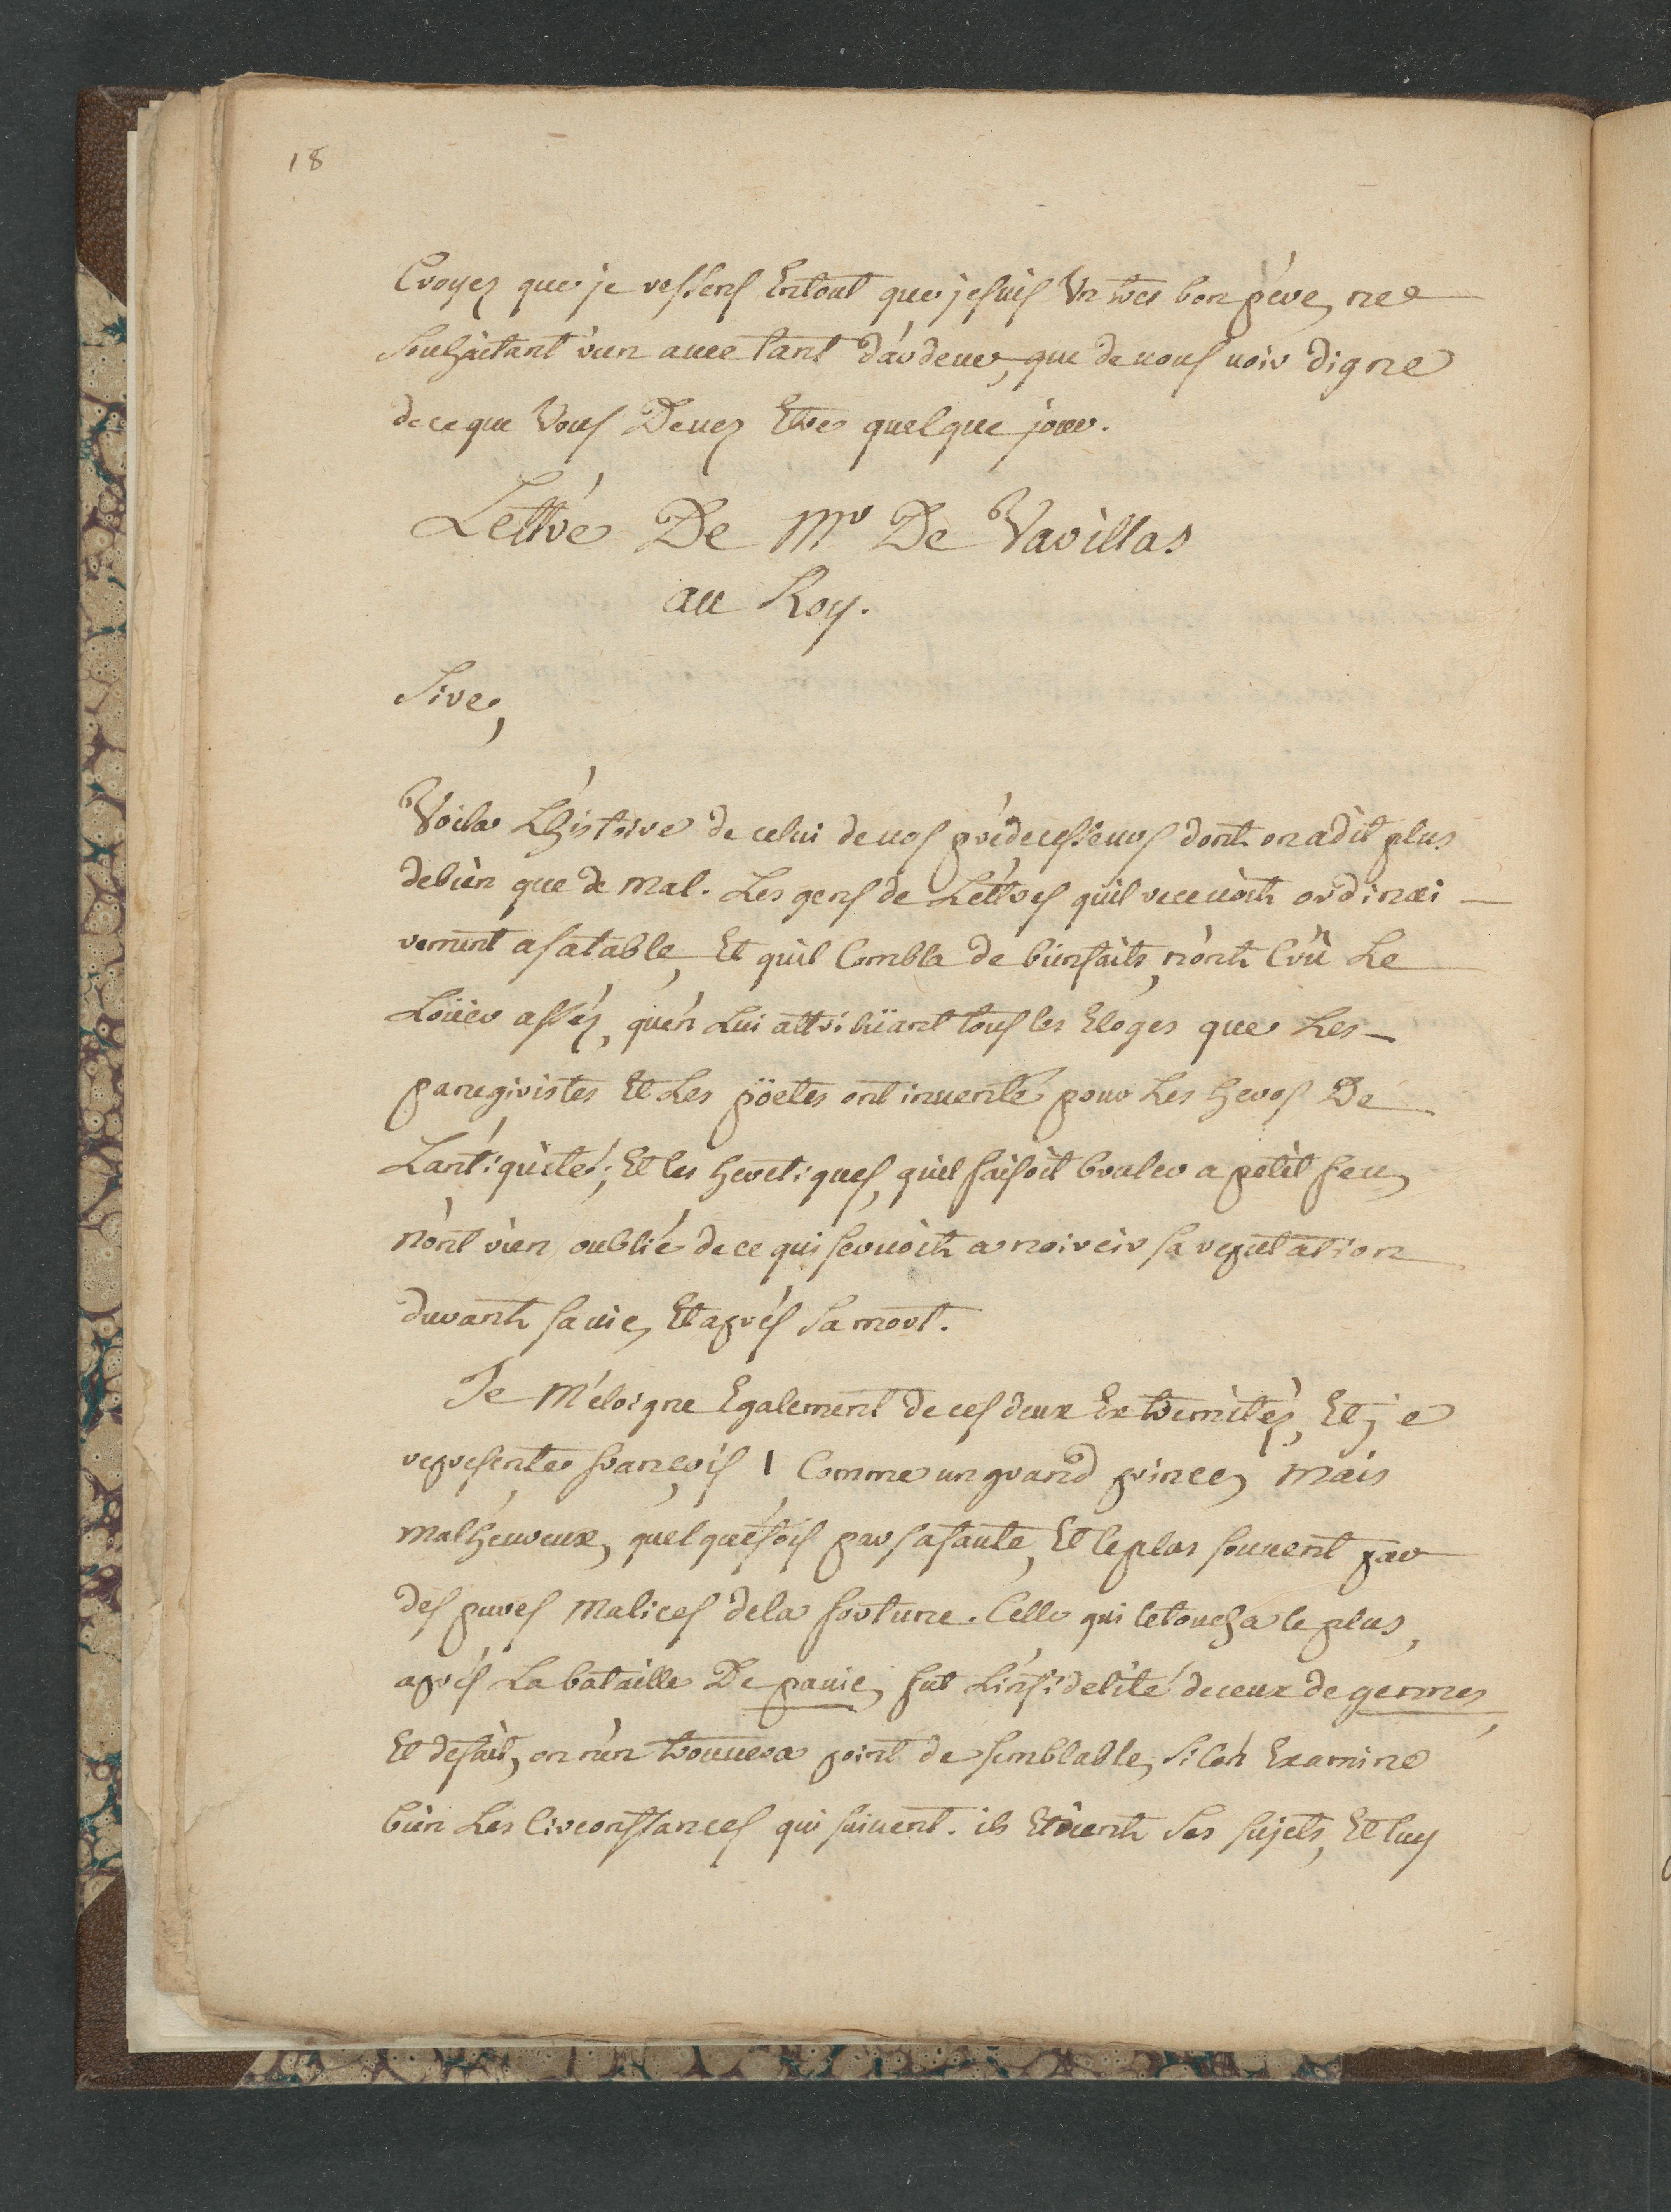 18
Croyez que je ressens Entout que jesuis Un tres bon pére, ne
Souhaitant rien avec tant d'ardeur, que de vous voir digne
de ce que Vous Devez Etre quelque jour.
Lettre De Mr De Varillas
au Roy.
Sire,
Voila L'histoire de celui de vos prédecesseurs dont on a dit plus
de bien que de mal. Les gens de Léttres qu'il recevoit ordinai
rement a sa table, Et qu'il Combla de bienfaits, n'ont Crû Le
Loüer assés, qu'en Lui attribüant tous les Eloges que Les
panegiristes Et Les poëtes ont inventé pour Les heros De
L'antiquité; Et les heretiques, qu'il faisoit bruler a petit feu,
n'ont rien oublié de ce qui servoit a noircir sa reputation
durant sa vie, Et aprés Sa mort.
Je M'éloigne Egalement de ces deux Extremités, Et je
represente françois I Comme un grand prince, mais
malheureux, quelquefois par sa faute, Et le plus souvent par
des pures Malices de la fortune. Celle qui le toucha le plus,
aprés La bataille De pavie, fut L'infidelité de ceux de gennes,
Et de fait, on n'en trouvera point de semblable, Si l'on Examine
bien Les Circonstances qui suivent. ils Etoient Ses sujets, Et luy